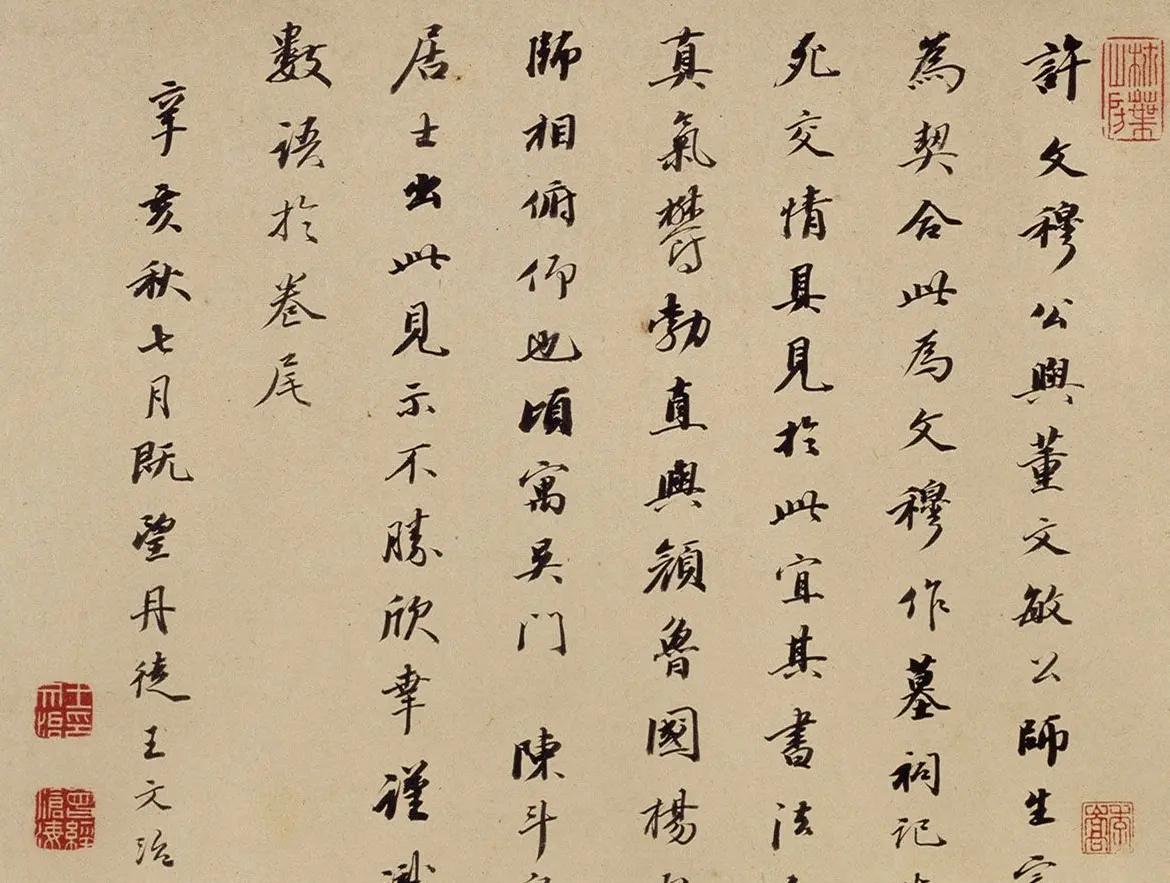 許文穆公與董文敏公師生
為契合此為文穆作墓祠記
死交情具見於此宜其書法
真氣欝勃直與顏魯國楊
師相俯仰也頃寓吳門　陳斗
居士出此見示不勝欣幸謹
數語於卷尾
辛亥秋七月既望丹徒王文治
曾經滄海